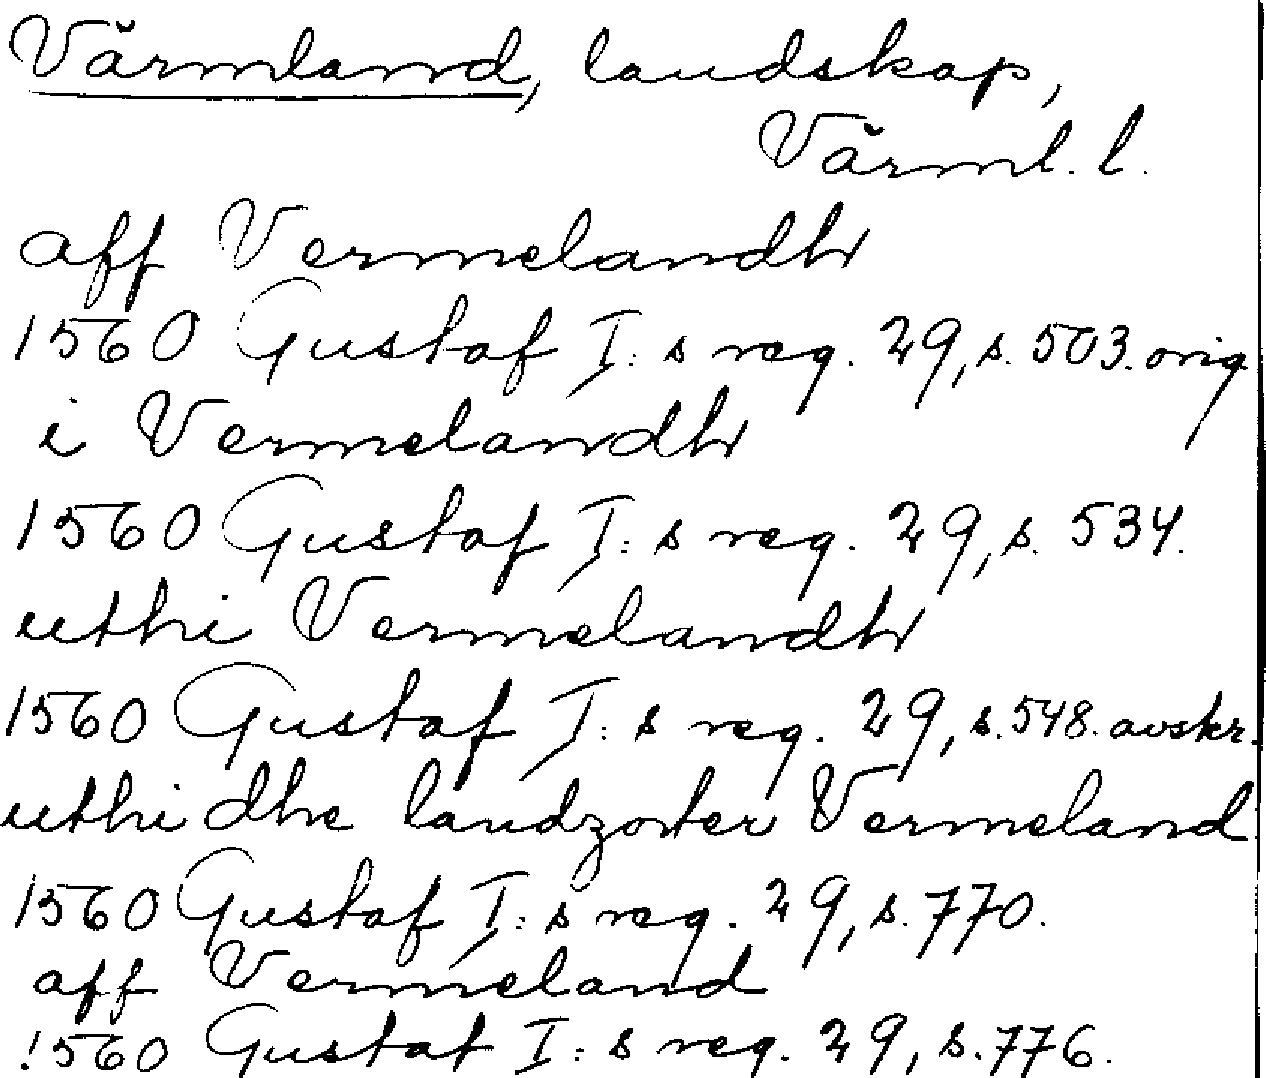 Värmland, landskap,
Värml. l.
aff Vermelandh
1560 Gustaf I:s reg. 29, s. 503. orig
i Vermelandh
1560 Gustaf I:s reg. 29, s. 534.
uthi Vermelandh
1560 Gustaf I:s reg. 29, s. 548. avskr.
uthi dhe landzorter Vermeland
1560 Gustaf I:s reg. 29, s. 770.
aff Vermeland
1560 Gustaf I:s reg. 29, s. 776.